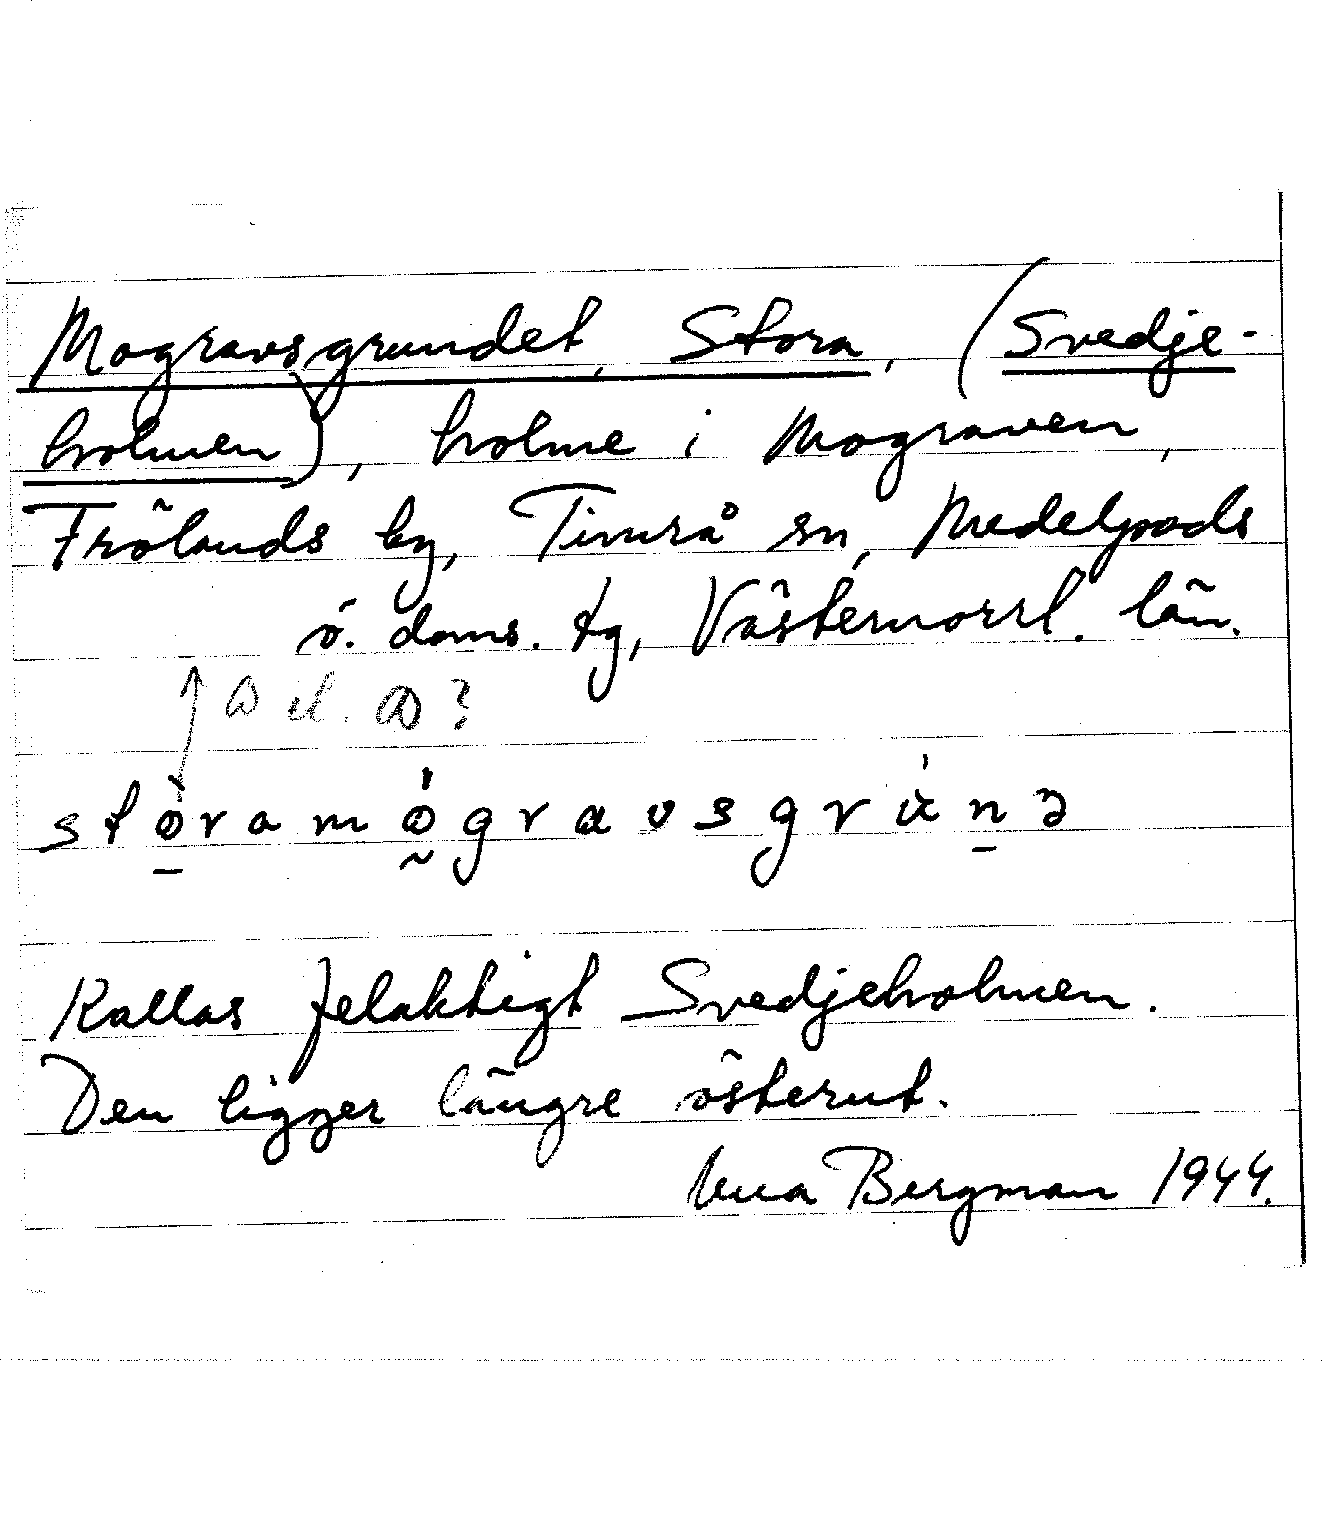 Mogravsgrundet, Stora, (Svedje-
holmen), holme i Mograven,
Frölands by, Timrå sn, Medelpads
ö. doms. tg, Västernorrl. län.
el. ?
Kallas felaktigt Svedjeholmen.
Den ligger längre österut.
Bergman 1944.